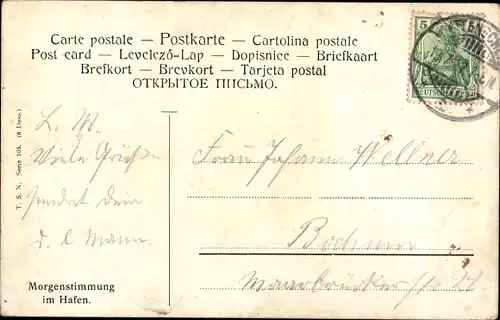 Carte postale — Postkarte — Cartolina postale
Post card — Levelező-Lap — Dopisnice — Briefkaart
Brefkort — Brevkort — Tarjeta postal
ОТКРЫТОЕ ПИСЬМО.
5
DEUTSCHES
T. S. N. Serie 105. (6 Dess.)
L. M.
Viele Grüße
sendet dein
d. l. Mann.
Frau Johann Wellner
Bochum
24
Morgenstimmung
im Hafen.